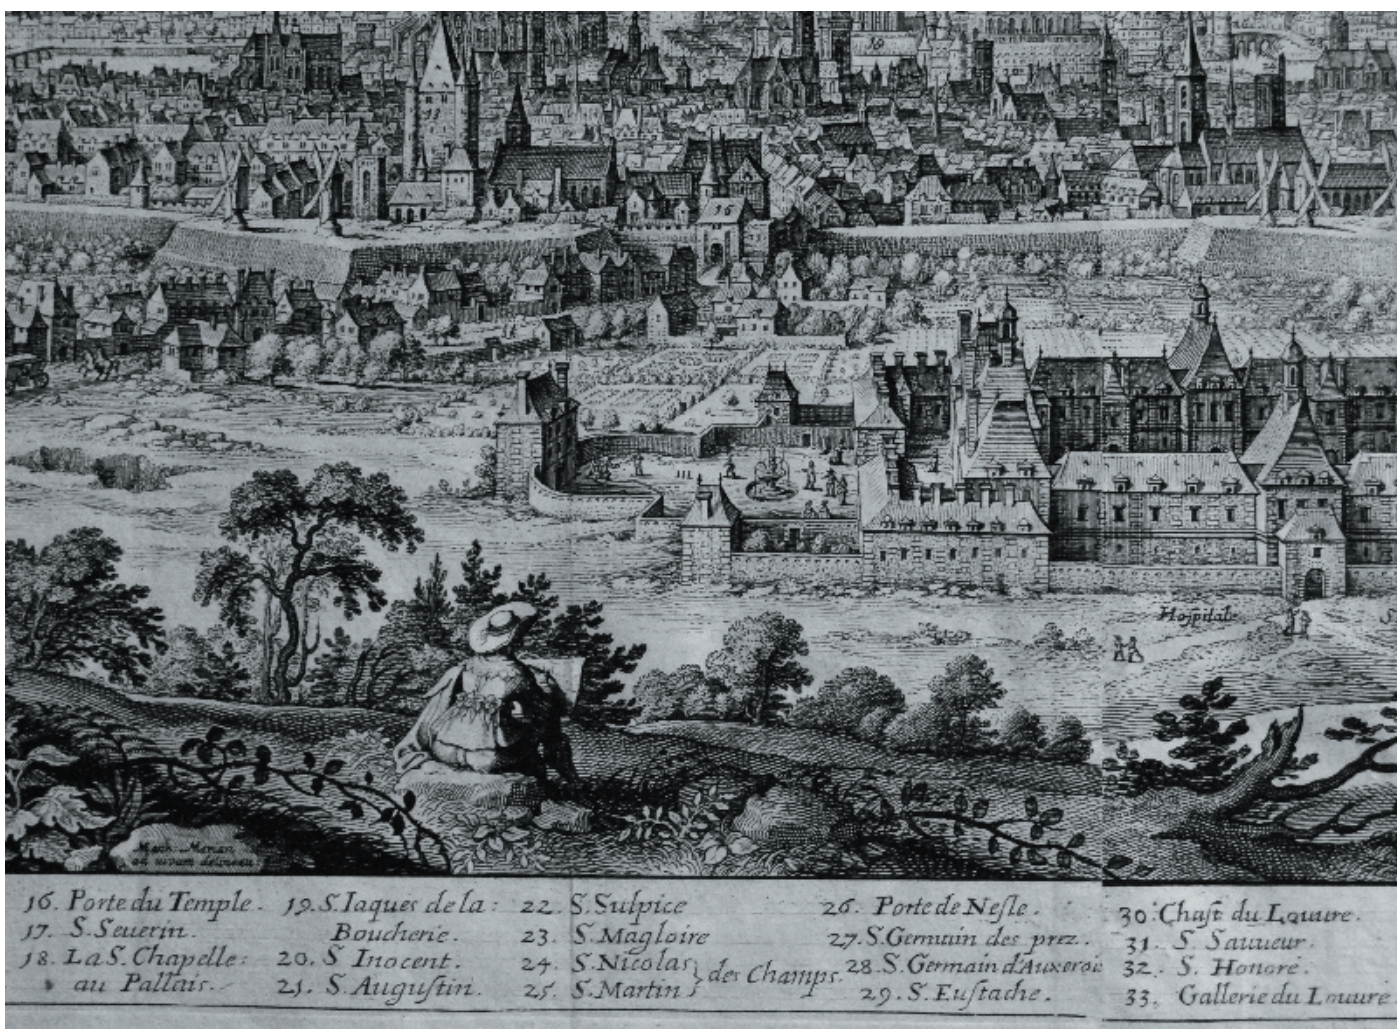 16
Hospitale
Math: Merian
ad uiuum delineau:
16. Porte du Temple.
17. S. Seuerin.
18. La S. Chapelle:
au Pallais.
19. S. Iaques de la:
Boucherie.
20. S Inocent.
21. S. Augustin.
22. S. Sulpice
23. S. Magloire
24. S. Nicolas } des Champs.
25. S. Martin
26. Porte de Nesle.
27. S. Germain des prez.
28. S. Germain d'Auxeroi
29. S. Eustache.
30. Chast du Louure.
31. S. Sauueur.
32. S. Honoré.
33. Gallerie du Louure